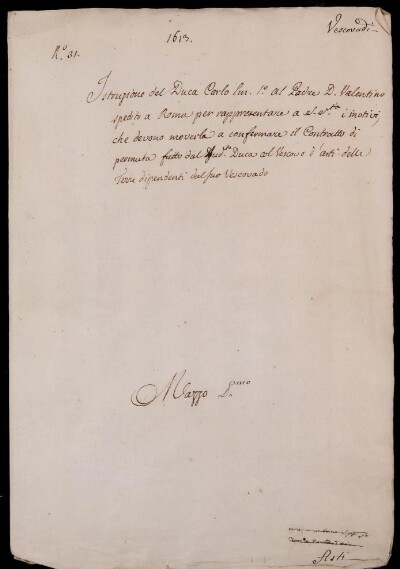 Vescovadi
1613.
N.° 31.
Istruzione del Duca Carlo Em. 1.° al Padre D. Valentino
spedito a Roma per rappresentare a S. S.tà i motivi,
che devono moverla a confermare il Contratto di
permuta fatto dal pred.° Duca col Vescovo d'Asti delle
Terre dipendenti dal suo Vescovado
Mazzo P.mo
Asti